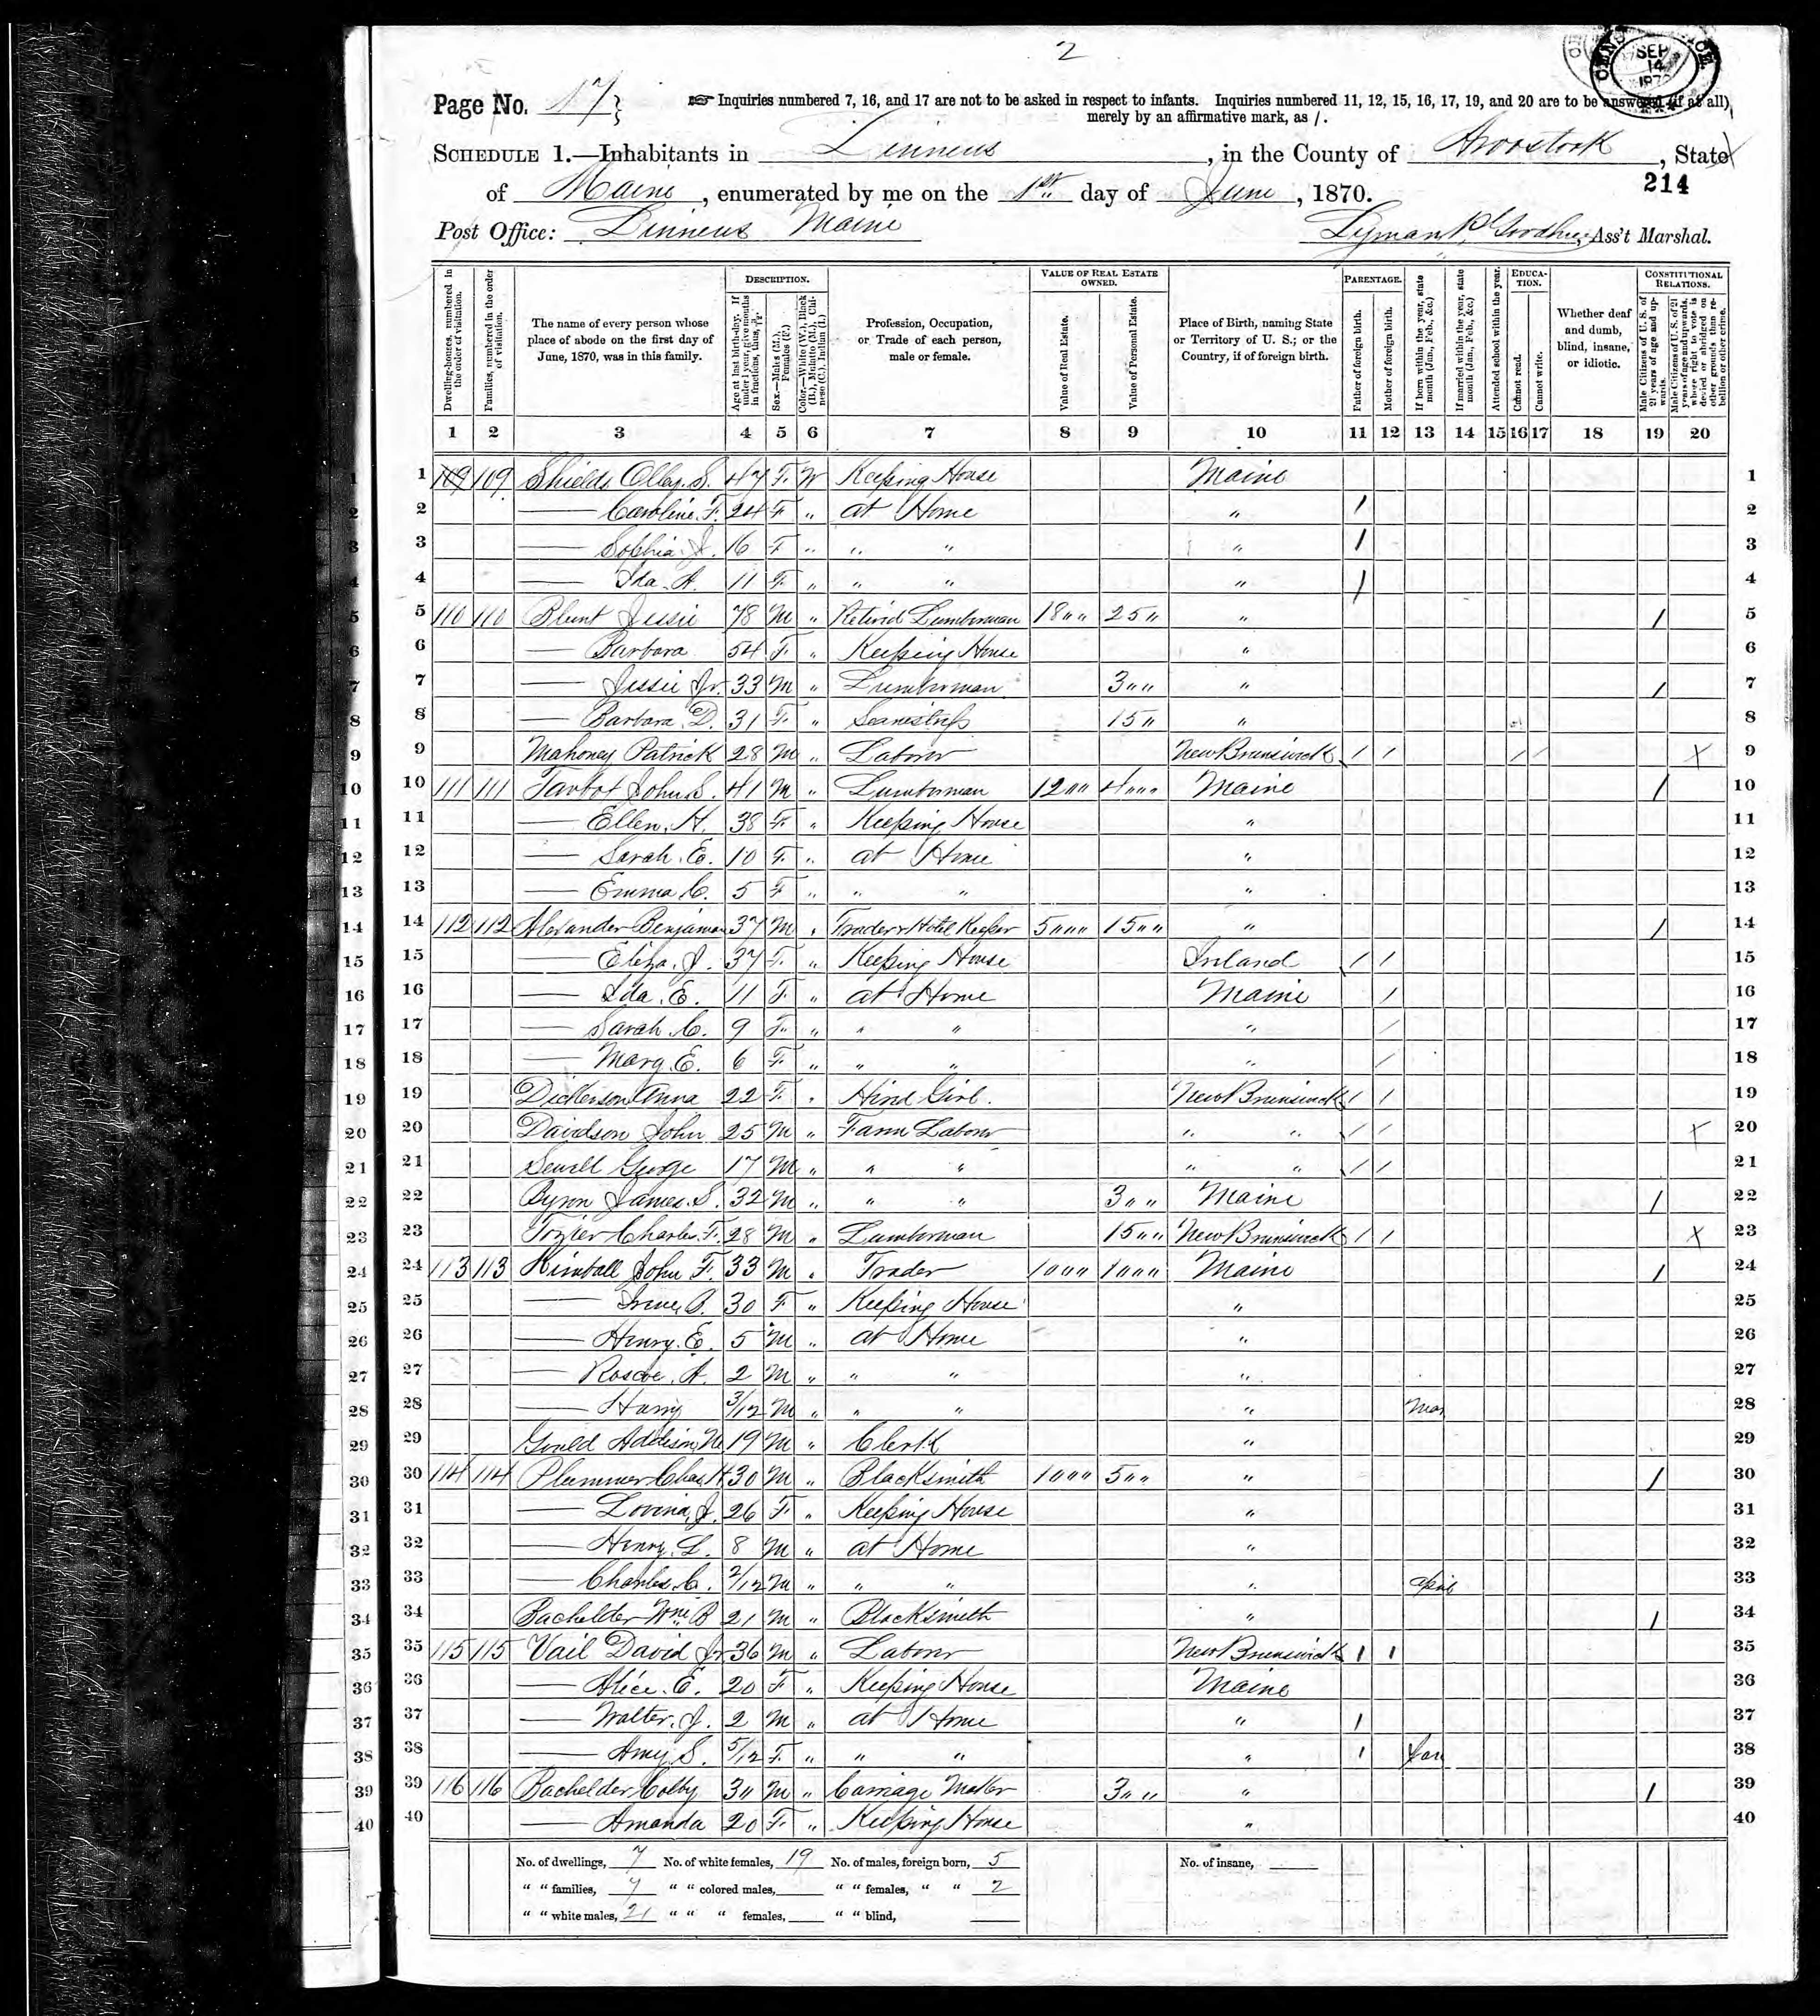 2
CENSUS OFFICE SEP 14 1870
Page No. 17
Inquiries numbered 7, 16, and 17 are not to be asked in respect to infants. Inquiries numbered 11, 12, 15, 16, 17, 19, and 20 are to be answered (if at all)
merely by an affirmative mark, as /.
SCHEDULE 1.—Inhabitants in Linneus, in the County of Aroostook, State
of Maine, enumerated by me on the 1st day of June, 1870.
214
Post Office: Linneus Maine
Lyman P. Goodhue, Ass't Marshal.
Dwelling-houses, numbered in the order of visitation.
Families, numbered in the order of visitation.
The name of every person whose place of abode on the first day of June, 1870, was in this family.
DESCRIPTION.
Age at last birth-day. If under 1 year, give months in fractions, thus, 3/12.
Sex.—Males (M.), Females (F.)
Color.—White (W.), Black (B.), Mulatto (M.), Chinese (C.), Indian (I.)
Profession, Occupation, or Trade of each person, male or female.
VALUE OF REAL ESTATE OWNED.
Value of Real Estate.
Value of Personal Estate.
Place of Birth, naming State or Territory of U. S.; or the Country, if of foreign birth.
PARENTAGE.
Father of foreign birth.
Mother of foreign birth.
If born within the year, state month (Jan., Feb., &c.)
If married within the year, state month (Jan., Feb., &c.)
Attended school within the year.
EDUCATION.
Cannot read.
Cannot write.
Whether deaf and dumb, blind, insane, or idiotic.
CONSTITUTIONAL RELATIONS.
Male Citizens of U. S. of 21 years of age and upwards.
Male Citizens of U. S. of 21 years of age and upwards, where right to vote is denied or abridged on other grounds than rebellion or other crime.
1 2 3 4 5 6 7 8 9 10 11 12 13 14 15 16 17 18 19 20
1 109 109 Shields Olley S. 47 F W Keeping House Maine 1
2 — Caroline F. 24 F " at Home " / 2
3 — Sophia J. 16 F " " " " / 3
4 — Ida A. 11 F " " " " / 4
5 110 110 Blunt Jessie 78 M " Retired Lumberman 18"" 25" " / 5
6 — Barbara 54 F " Keeping House " 6
7 — Jessie Jr. 33 M " Lumberman 3"" " / 7
8 — Barbara D. 31 F " Seamstress 15" " 8
9 Mahoney Patrick 28 M " Laborer New Brunswick / / / / X 9
10 111 111 Tarbot John S. 41 M " Lumberman 12"" 4""" Maine / 10
11 — Ellen H. 38 F " Keeping House " 11
12 — Sarah E. 10 F " at Home " 12
13 — Emma C. 5 F " " " " 13
14 112 112 Alexander Benjamin 37 M " Trader & Hotel Keeper 5""" 15"" " / 14
15 — Eliza J. 37 F " Keeping House Ireland / / 15
16 — Ida E. 11 F " at Home Maine / 16
17 — Sarah C. 9 F " " " " / 17
18 — Mary E. 6 F " " " " / 18
19 Dickerson Anna 22 F " Hired Girl. New Brunswick / / 19
20 Davidson John 25 M " Farm Laborer " " / / X 20
21 Sewell George 17 M " " " " " / / 21
22 Byron James S. 32 M " " " 3"" Maine / 22
23 Tozier Charles F. 28 M " Lumberman 15"" New Brunswick / / X 23
24 113 113 Kimball John F. 33 M " Trader 1""" 1"""" Maine / 24
25 — Irene B. 30 F " Keeping House " 25
26 — Henry E. 5 M " at Home " 26
27 — Roscoe A. 2 M " " " " 27
28 — Harry 3/12 M " " " " Mar 28
29 Gould Addison 19 M " Clerk " 29
30 114 114 Plummer Chas H. 30 M " Blacksmith 1""" 5"" " / 30
31 — Lovina J. 26 F " Keeping House " 31
32 — Henry L. 8 M " at Home " 32
33 — Charles C. 2/12 M " " " " April 33
34 Bachelder Wm B 21 M " Blacksmith " / 34
35 115 115 Vail David Jr 36 M " Laborer New Brunswick / / 35
36 — Alice E. 20 F " Keeping House Maine 36
37 — Walter J. 2 M " at Home " / 37
38 — Amy S. 5/12 F " " " " / Jan 38
39 116 116 Bachelder Colby 3" M " Carriage Maker 3"" " / 39
40 — Amanda 20 F " Keeping House " 40
No. of dwellings, 7 No. of white females, 19 No. of males, foreign born, 5 No. of insane,
" " families, 7 " " colored males, " " females, " " 2
" " white males, 21 " " " females, " " blind,